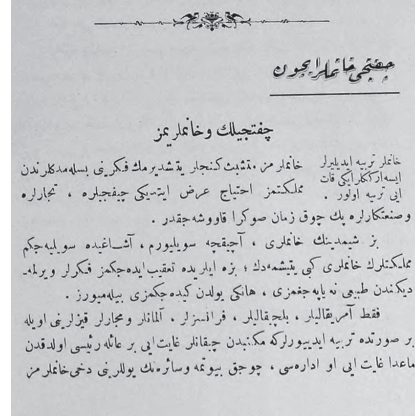 چفتجی خانملر ایچون
چفتجیلك و خانملریمز
خانملر تربیه ایدیلیرلر
ایسه ارککلر ایکی قات
ایی تربیه اولور .
خانملرمز متشبث کنجلر یتشدیرمك فکرینی بسله‌مدکلرندن
مملکتمز احتیاج عرض ایتدیکی چیفجیلره ، تجارلره
وصنعتکارلره پك چوق زمان صوکرا قاووشه‌جقدر .
بز شیمدینك خانملری ، آچیقجه سویلیورم ، آشاغیده سویلیه‌جکم
مملکتلرك خانملری کبی یتیشمه‌دك ؛ بزه ایلریده تعقیب ایده‌جکمز فکرلر ویرلمه‌-
دیکندن طبیعی نه یاپه‌جغمزی ، هانکی یولدن کیده‌جکمزی بیله‌میورز .
فقط آمریقالیلر ، بلچیقالیلر ، فرانسزلر ، آلمانلر ومجارلر قیزلرینی اویله
بر صورتده تربیه ایدییورلرکه مکتبدن چیقانلر غایت ایی بر عائله رئیسی اولدقدن
ماعدا غایت ایی او اداره‌سی ، چوجق بیوتمه وسائره‌نك یوللرینی دخی خانملرمز